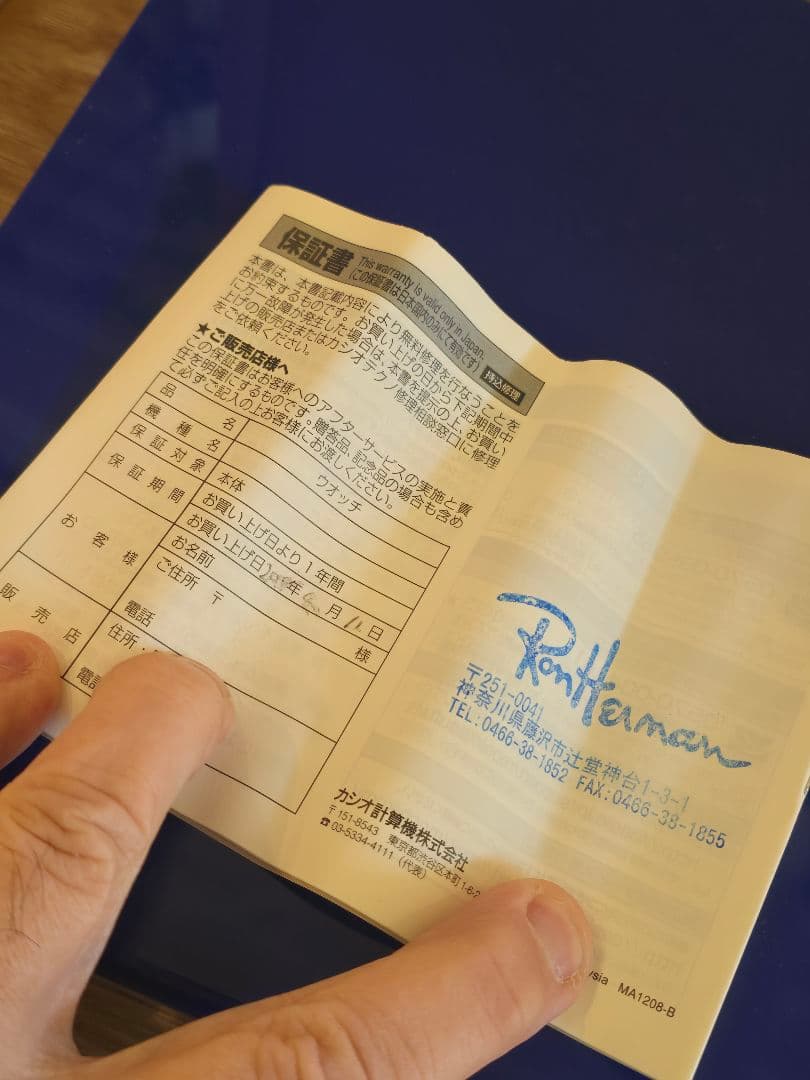 保証書
This warranty is valid only in Japan.
(この保証書は日本国内のみにて有効です)
持込修理
本書は、本書記載内容により無料修理を行なうことを
お約束するものです。お買い上げの日から下記期間中
に万一故障が発生した場合は、本書を提示の上、お買い
上げの販売店またはカシオテクノ修理相談窓口に修理
をご依頼ください。
★ご販売店様へ
この保証書はお客様へのアフターサービスの実施と責
任を明確にするものです。贈答品、記念品の場合も含め
て必ずご記入の上お客様にお渡しください。
品名 ウオッチ
機種名
保証対象 本体
保証期間 お買い上げ日より1年間
お買い上げ日 年 月 12 日
お客様 お名前 様
ご住所 〒
電話
販売店 住所・
電話
Ron Herman
〒251-0041
神奈川県藤沢市辻堂神台1-3-1
TEL:0466-38-1852 FAX:0466-38-1855
カシオ計算機株式会社
〒151-8543 東京都渋谷区本町1-6-2
☎03-5334-4111(代表)
ysia MA1208-B